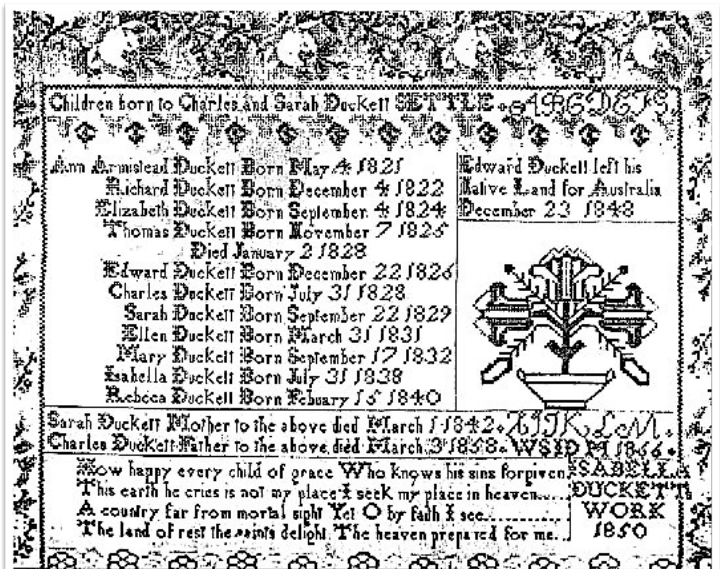 Children born to Charles and Sarah Duckett SETTLE
Ann Armistead Duckett Born May 4 1821
Richard Duckett Born December 4 1822
Elizabeth Duckett Born September 4 1824
Thomas Duckett Born November 7 1825
Died January 2 1828
Edward Duckett Born December 22 1826
Charles Duckett Born July 31 1828
Sarah Duckett Born September 22 1829
Ellen Duckett Born March 31 1831
Mary Duckett Born September 17 1832
Isabella Duckett Born July 31 1838
Rebecca Duckett Born Febuary 15 1840
Edward Duckett left his
Native Land for Australia
December 23 1848
Sarah Duckett Mother to the above died March 1 1842
Charles Duckett Father to the above died March 3 1858 WSID M 1866
How happy every child of grace Who knows his sins forgiven
This earth he cries is not my place I seek my place in heaven.....
A country far from mortal sight Yet O by faith I see..............
The land of rest the saints delight The heaven prepared for me...
ISABELLA
DUCKETTS
WORK
1850